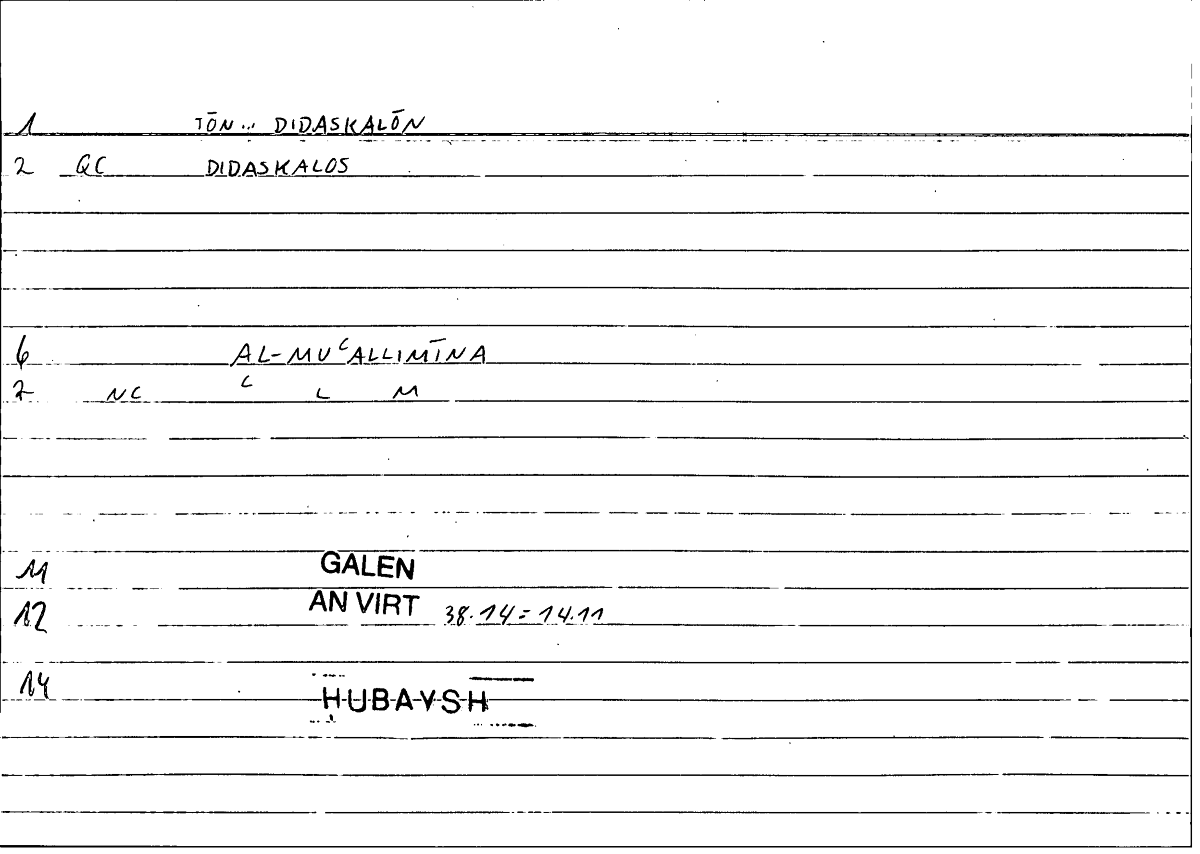 1 TŌN... DIDASKALŌN
2 QC DIDASKALOS
6 AL-MUʿALLIMĪNA
7 NC ʿ L M
11 GALEN
12 AN VIRT 38.14 = 14.11
14 ḤUBAYSH